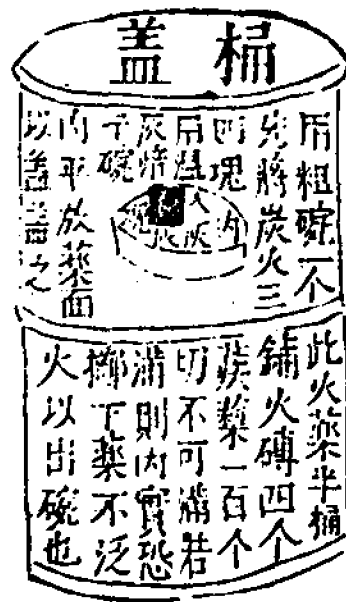 桶盖
用粗碗一个
先將炭火三
四塊
灰將
于碗
内平放藥面
以盖盖之
此火藥半桶
鋪火磚四个
蒺藜一百个
切不可滿若
滿則内實恐
擲下藥不泛
火以出碗也